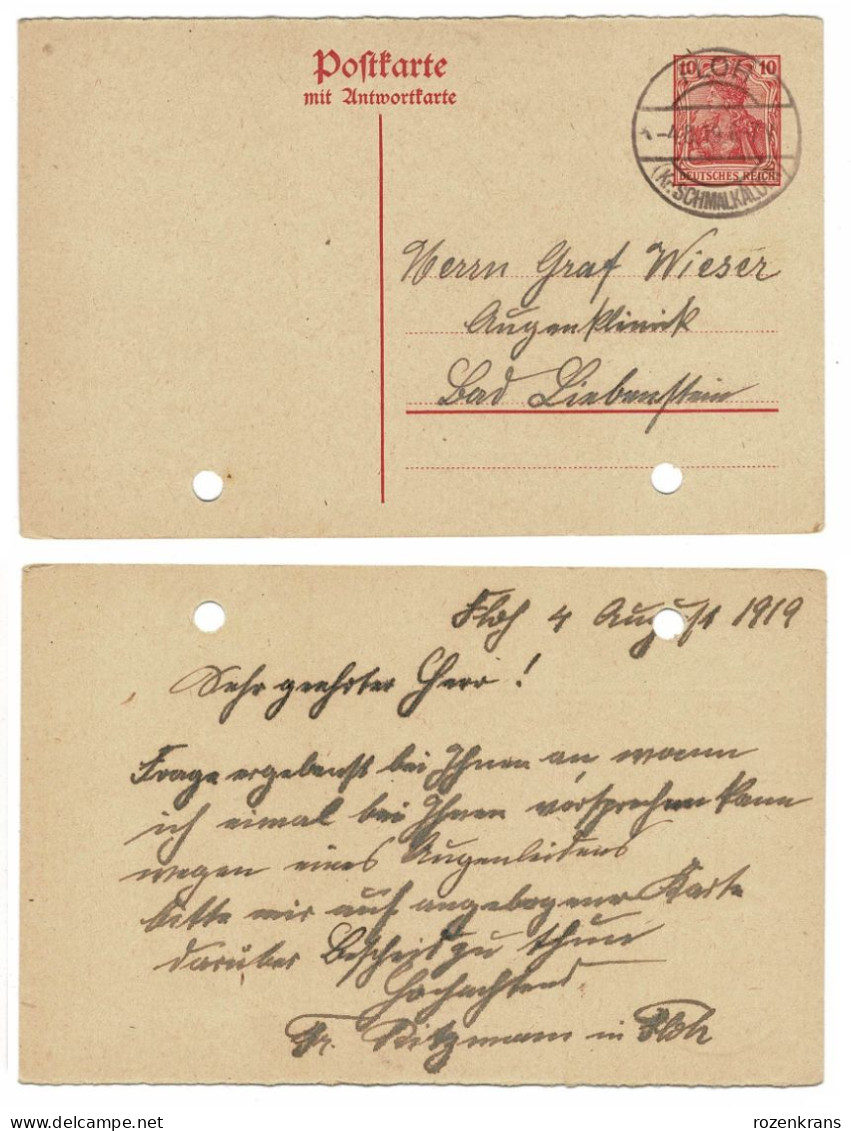 Postkarte
mit Antwortkarte
10 10
DEUTSCHES REICH
FLOH
(Kr. SCHMALKALDEN)
Herrn Graf Wieser
Augenklinick
Bad Liebenstein
Floh 4 August 1919
Sehr geehrter Herr!
Frage ergebenst bei Ihnen an wann
ich eimal bei Ihnen vorsprechen kann
wegen eines Augenleidens
bitte mir auf angebogener Karte
darüber Bescheid zu thun
Hochachtend
Fr. Ritzmann in Floh
rozenkrans